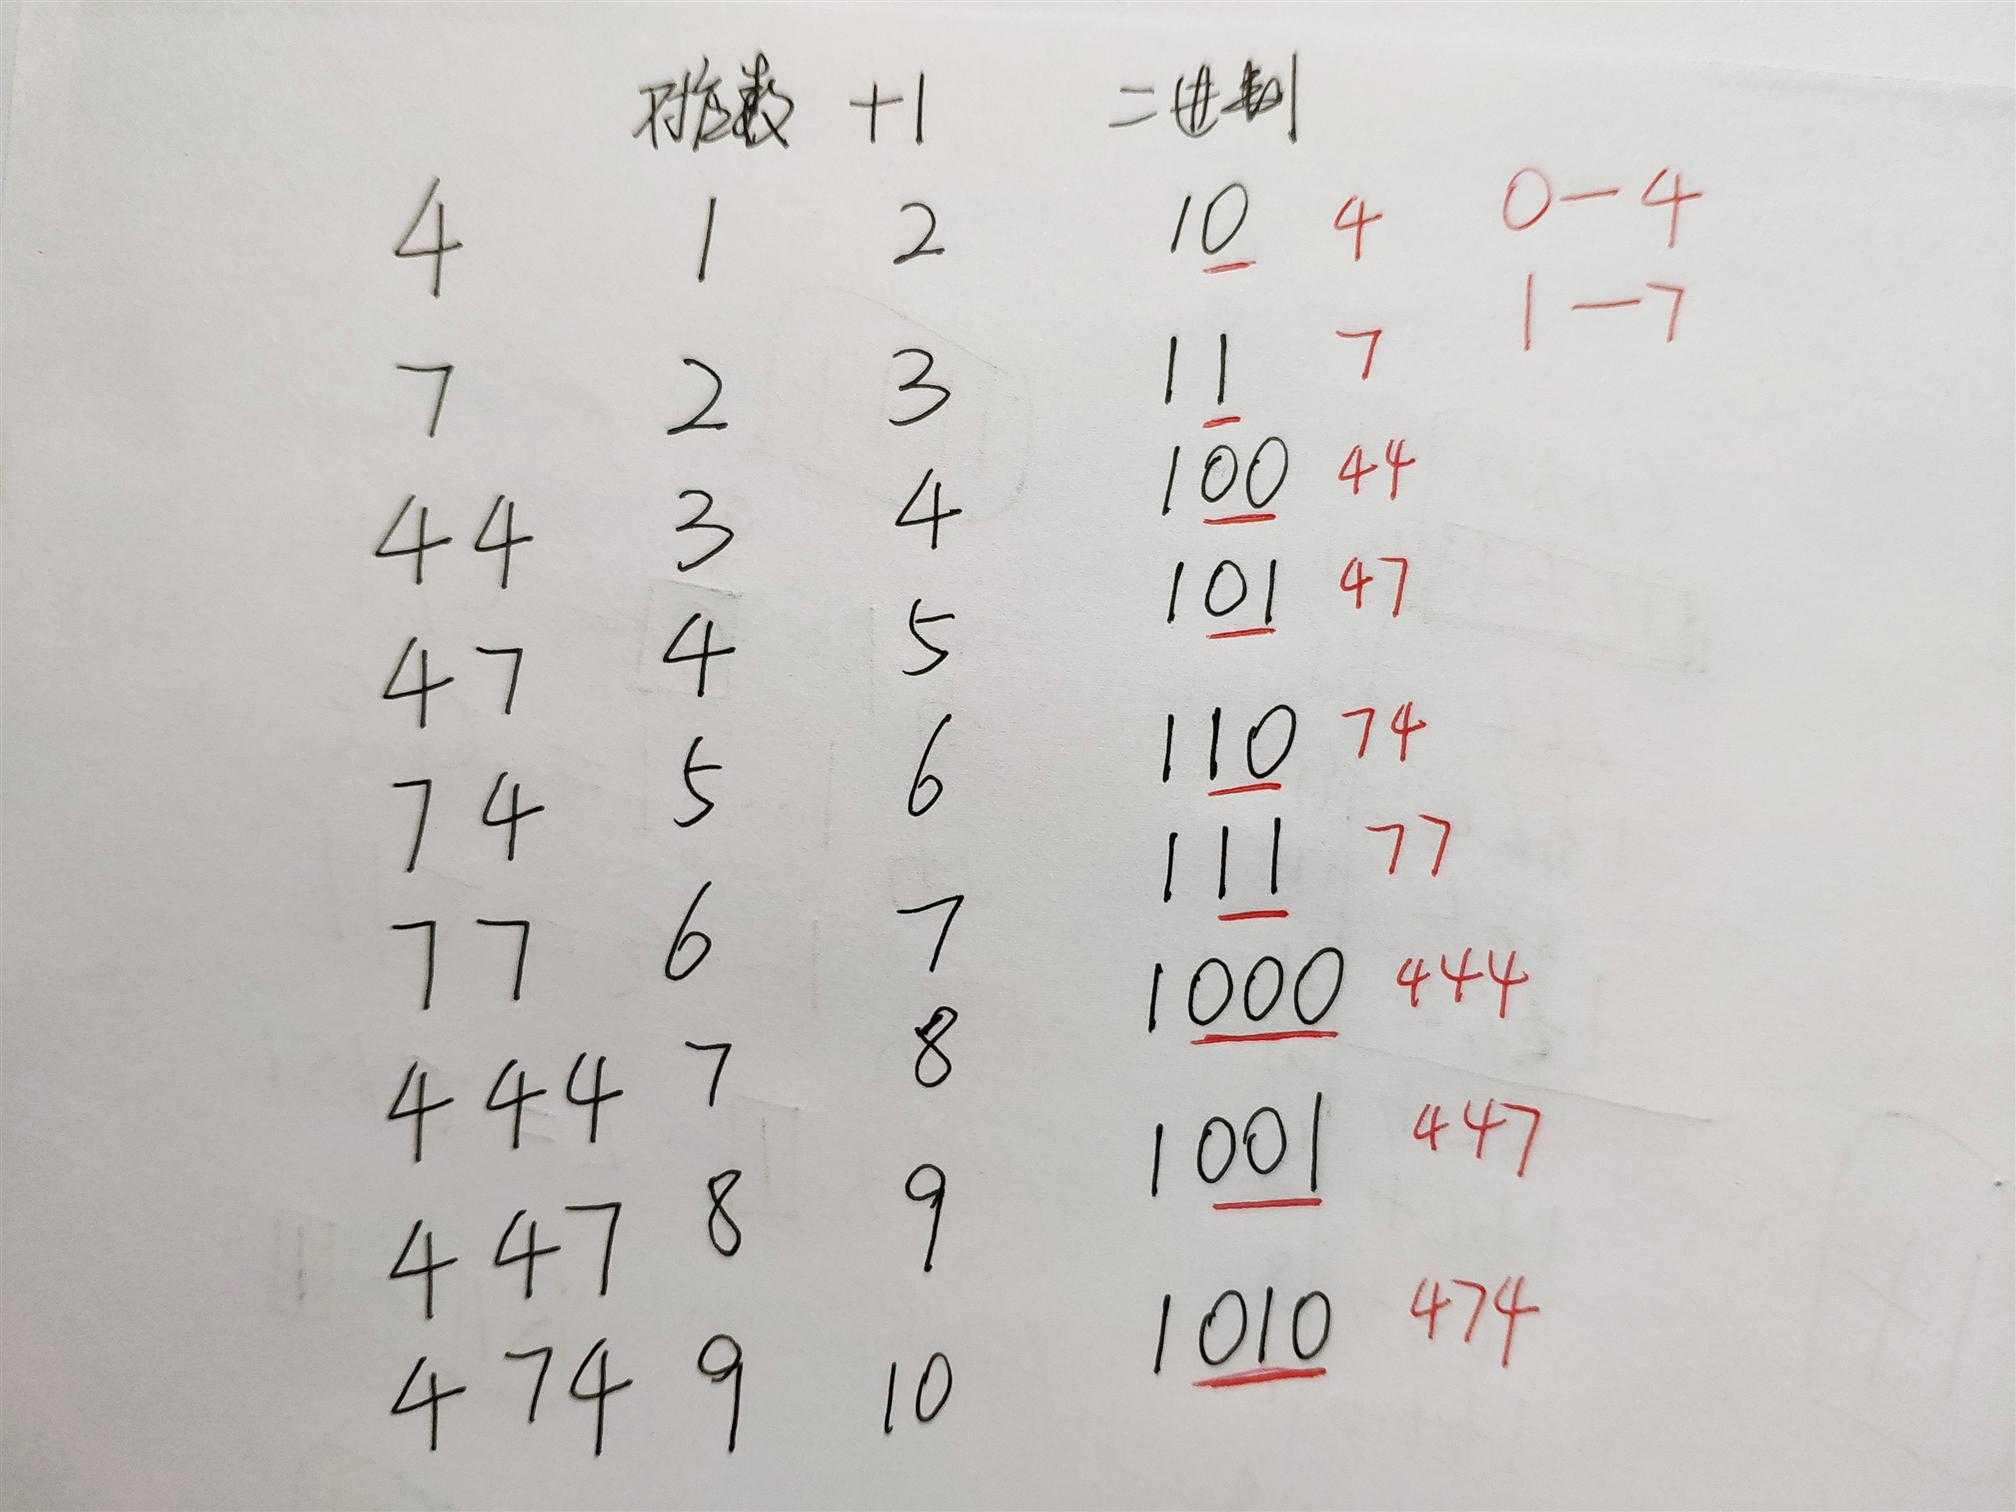 对应数 +1 二进制
4 1 2 10 4 0-4
7 2 3 11 7 1-7
44 3 4 100 44
47 4 5 101 47
74 5 6 110 74
77 6 7 111 77
444 7 8 1000 444
447 8 9 1001 447
474 9 10 1010 474